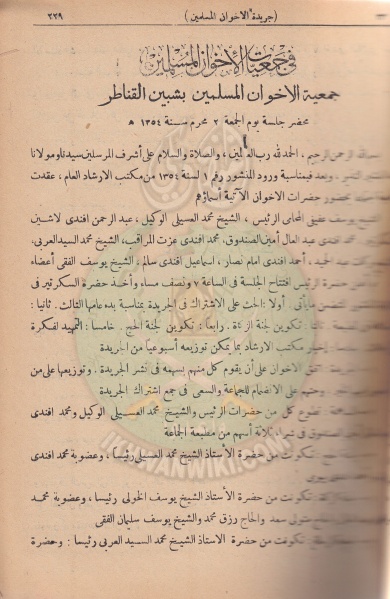 (جريدة الاخوان المسلمين) ٢٢٩
في جمعيات الأخوان المسلمين
جمعية الاخوان المسلمين بشبين القناطر
محضر جلسة يوم الجمعة ٢ محرم سنة ١٣٥٤ هـ
الله الرحمن الرحيم ، الحمد لله رب العالمين ، والصلاة والسلام على أشرف المرسلين سيدنا ومولانا
وبعد فبمناسبة ورود المنشور رقم ١ لسنة ١٣٥٤ من مكتب الارشاد العام ، عقدت
حضرات الاخوان الآتية أسماؤهم
عفيفي المحامى الرئيس ، الشيخ محمد العسيلى الوكيل ، عبد الرحمن افندى لاشين
افندى عبد العال أمين الصندوق ، محمد افندى عزت المراقب ، الشيخ محمد السيد العربى ،
عبد الحميد ، أحمد افندى امام نصار ، اسماعيل افندى سالم ، الشيخ يوسف الفقى أعضاء
حضرة الرئيس افتتاح الجلسة فى الساعة ٧ ونصف مساء وأخذ حضرة السكرتير فى
مايأتى . أولا : الحث على الاشتراك فى الجريدة بمناسبة بدء عامها الثالث . ثانيا :
تكوين لجنة الزكاة . رابعا : تكوين لجنة الحج . خامسا : التمهيد لفكرة
مكتب الارشاد بما يمكن توزيعه أسبوعيا من الجريدة
على أن يقوم كل منهم بسهمه فى نشر الجريدة . وتوزيعها على من
وحثهم على الانضمام للجماعة والسعى فى جمع اشتراك الجريدة
تطوع كل من حضرات الرئيس والشيخ محمد العسيلى الوكيل ومحمد افندى
ثلاثة أسهم من مطبعة الجماعة
تكونت من حضرة الاستاذ الشيخ محمد العسيلى رئيسا ، وعضوية محمد افندى
تكونت من حضرة الأستاذ الشيخ يوسف الخولى رئيسا ، وعضوية محمد
متولى سعد والحاج رزق محمد والشيخ يوسف سليمان الفقى
تكونت من حضرة الاستاذ الشيخ محمد السيد العربى رئيسا : وحضرة
IKHWANWIKI.COM